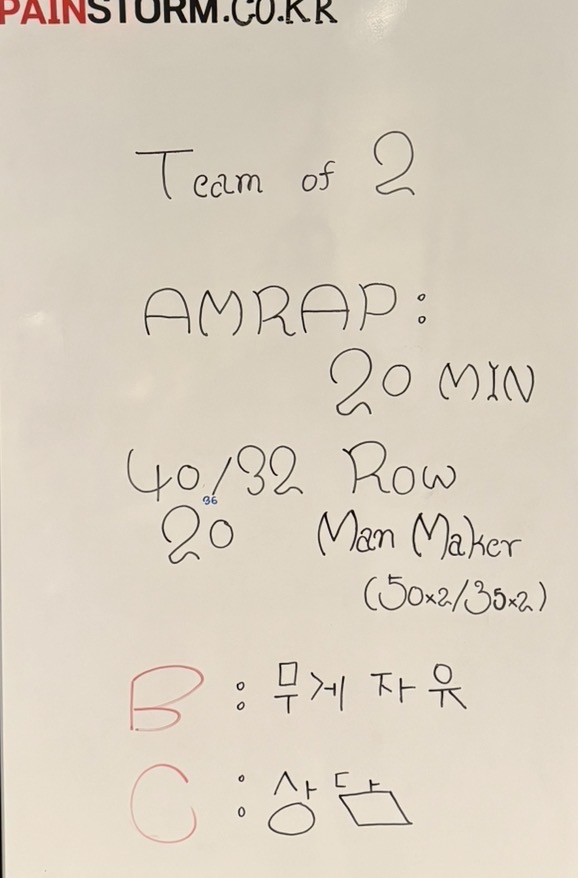 PAINSTORM.CO.KR
Team of 2
AMRAP:
20 MIN
40/32 Row
36
20 Man Maker
(50x2/35x2)
B : 무게 자유
C : 상담